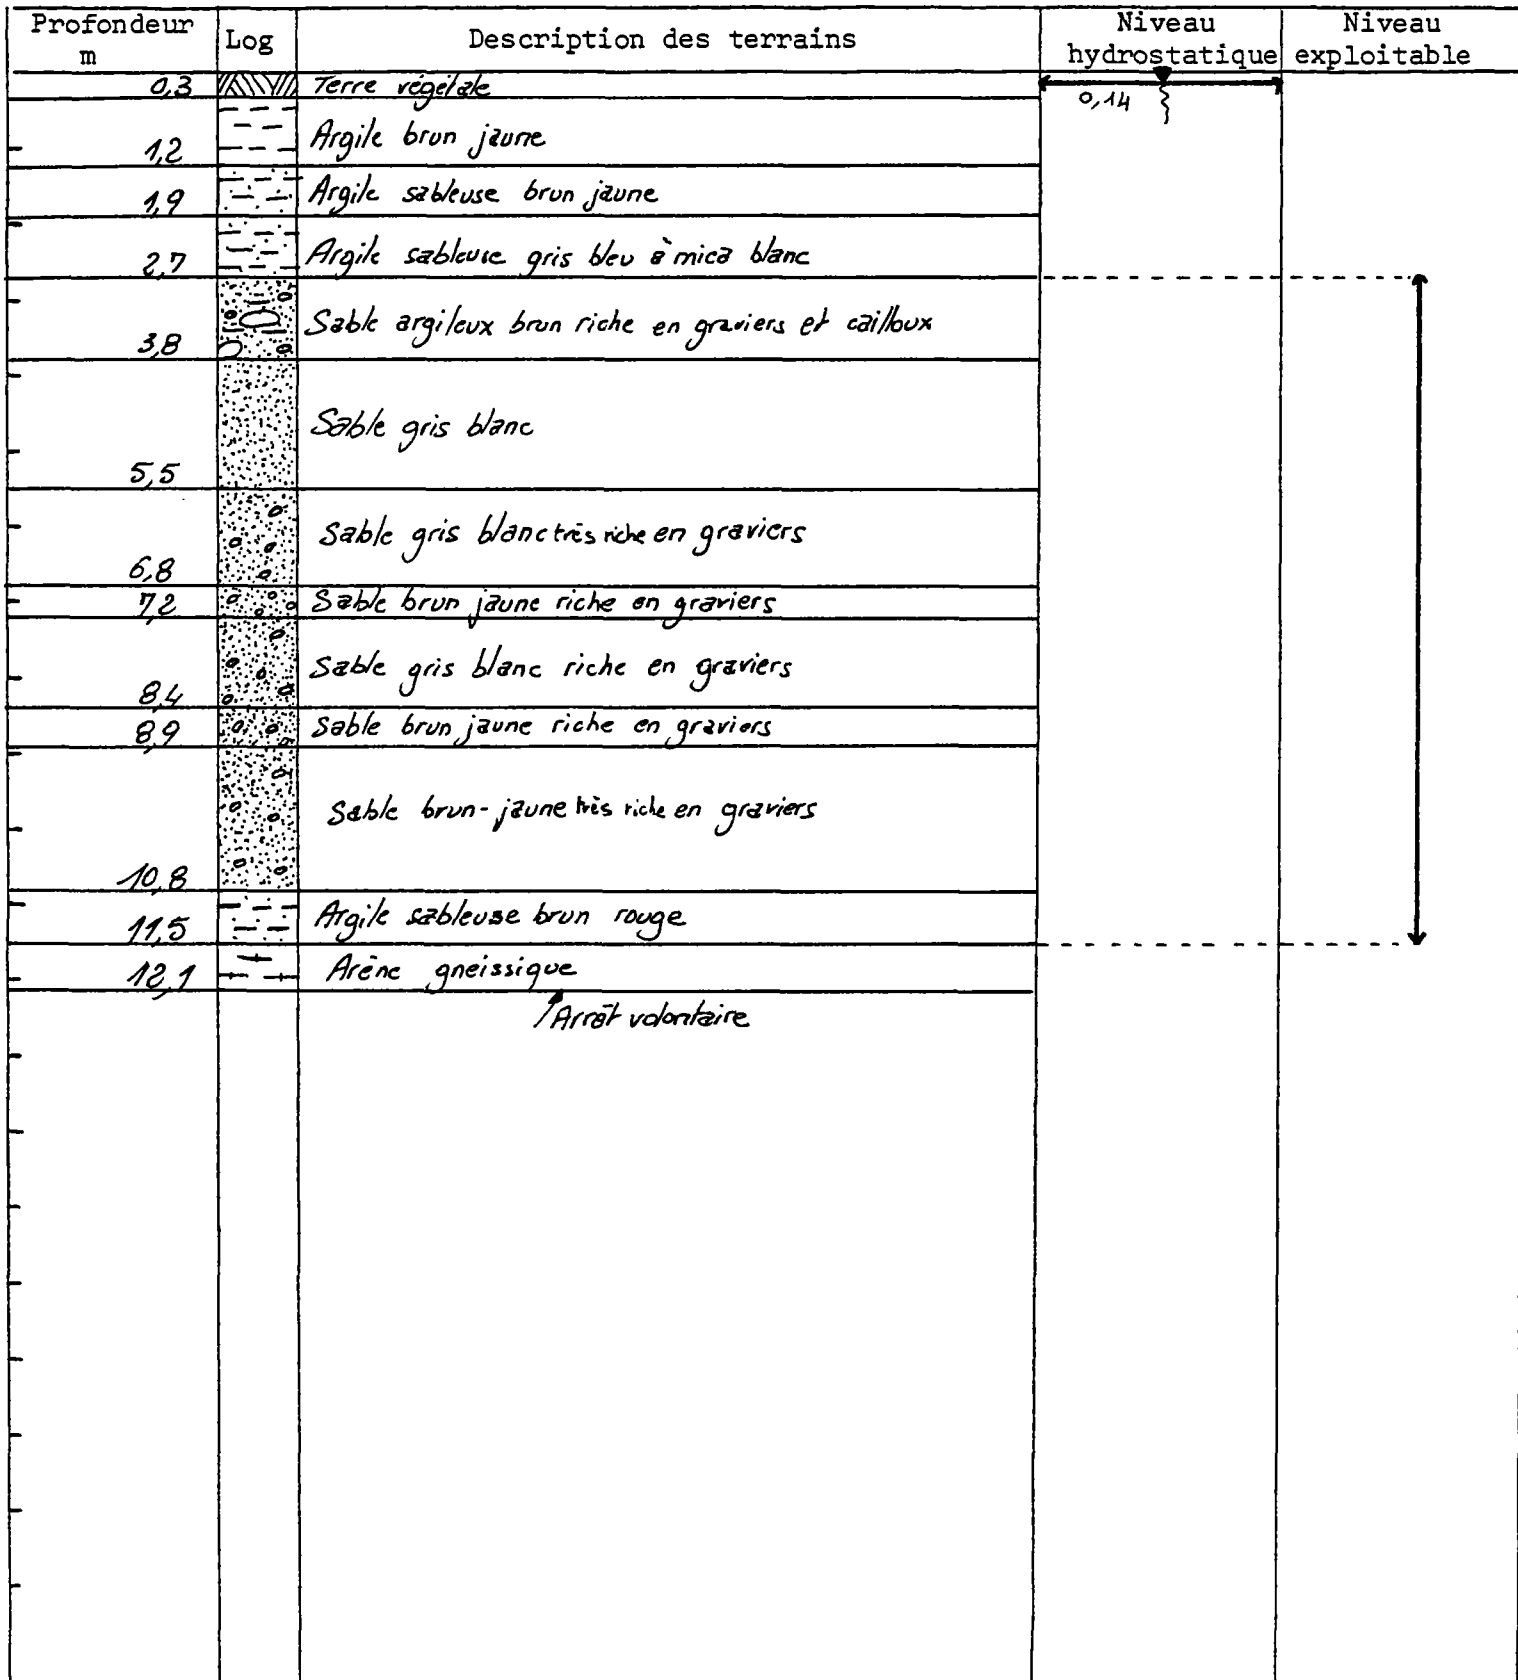 Profondeur m Log Description des terrains Niveau hydrostatique Niveau exploitable
0,3 Terre végétale 0,14
1,2 Argile brun jaune
1,9 Argile sableuse brun jaune
2,7 Argile sableuse gris bleu à mica blanc
3,8 Sable argileux brun riche en graviers et cailloux
5,5 Sable gris blanc
6,8 Sable gris blanc très riche en graviers
7,2 Sable brun jaune riche en graviers
8,4 Sable gris blanc riche en graviers
8,9 Sable brun jaune riche en graviers
10,8 Sable brun-jaune très riche en graviers
11,5 Argile sableuse brun rouge
12,1 Arène gneissique
Arrêt volontaire